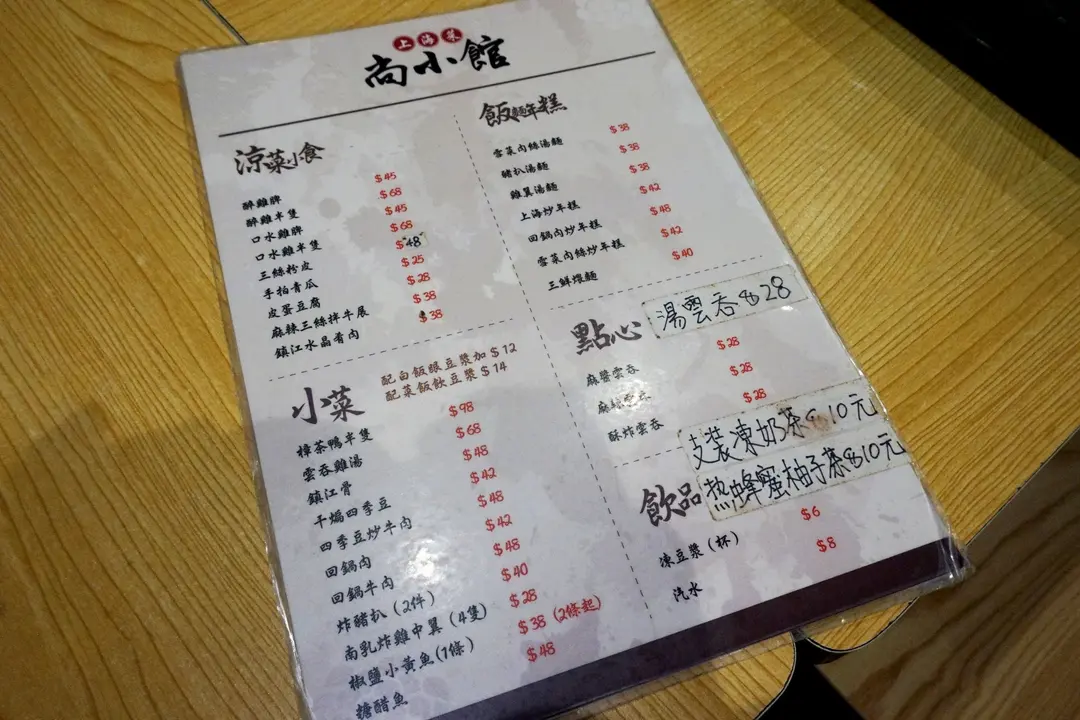 上海菜
尚小館
涼菜小食
醉雞脾 $45
醉雞半隻 $68
口水雞脾 $45
口水雞半隻 $68
三絲粉皮 $48
手拍青瓜 $25
皮蛋豆腐 $28
麻辣三絲拌牛展 $38
鎮江水晶肴肉 $38
小菜
配白飯跟豆漿加 $12
配菜飯飲豆漿 $14
樟茶鴨半隻 $98
雲吞雞湯 $68
鎮江骨 $48
干煸四季豆 $42
四季豆炒牛肉 $48
回鍋肉 $42
回鍋牛肉 $48
炸豬扒 (2件) $40
南乳炸雞中翼 (4隻) $28
椒鹽小黃魚 (1條) $38 (2條起)
糖醋魚 $48
飯麵年糕
雪菜肉絲湯麵 $38
豬扒湯麵 $38
雞翼湯麵 $38
上海炒年糕 $42
回鍋肉炒年糕 $48
雪菜肉絲炒年糕 $42
三鮮煨麵 $40
點心
湯雲吞 $28
麻醬雲吞 $28
麻辣雲吞 $28
酥炸雲吞 $28
支裝凍奶茶 $10元
飲品
热蜂蜜柚子茶 $10元
凍豆漿 (杯) $6
汽水 $8